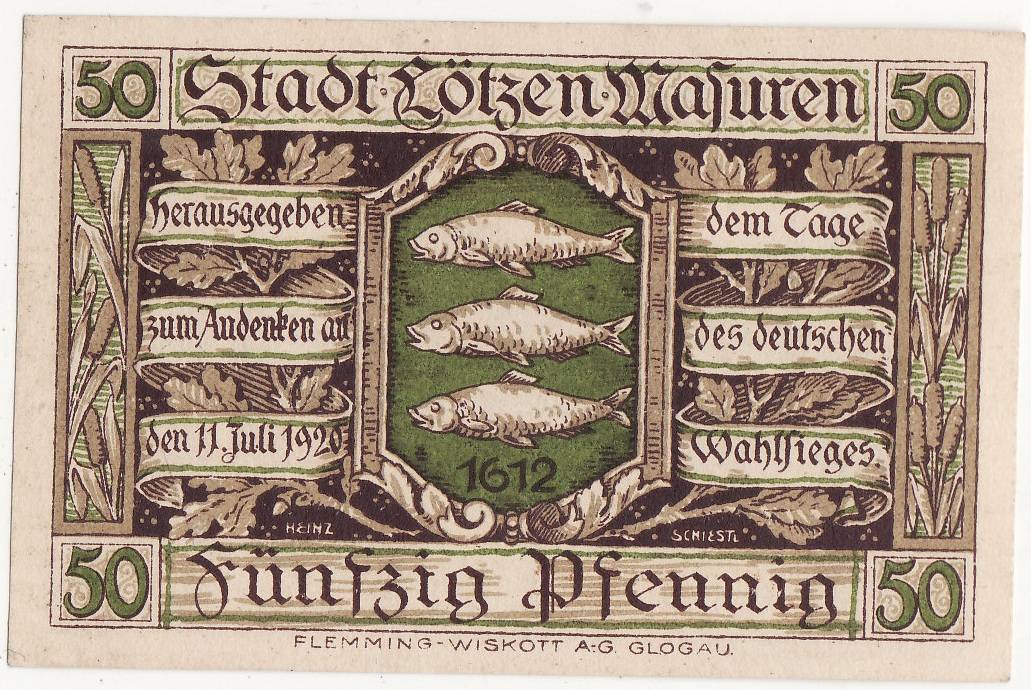 50 Stadt·Lötzen·Masuren 50
herausgegeben
zum Andenken an
den 11. Juli 1920
dem Tage
des deutschen
Wahlsieges.
1612
HEINZ SCHIESTL
50 Fünfzig Pfennig 50
FLEMMING-WISKOTT A:G. GLOGAU.